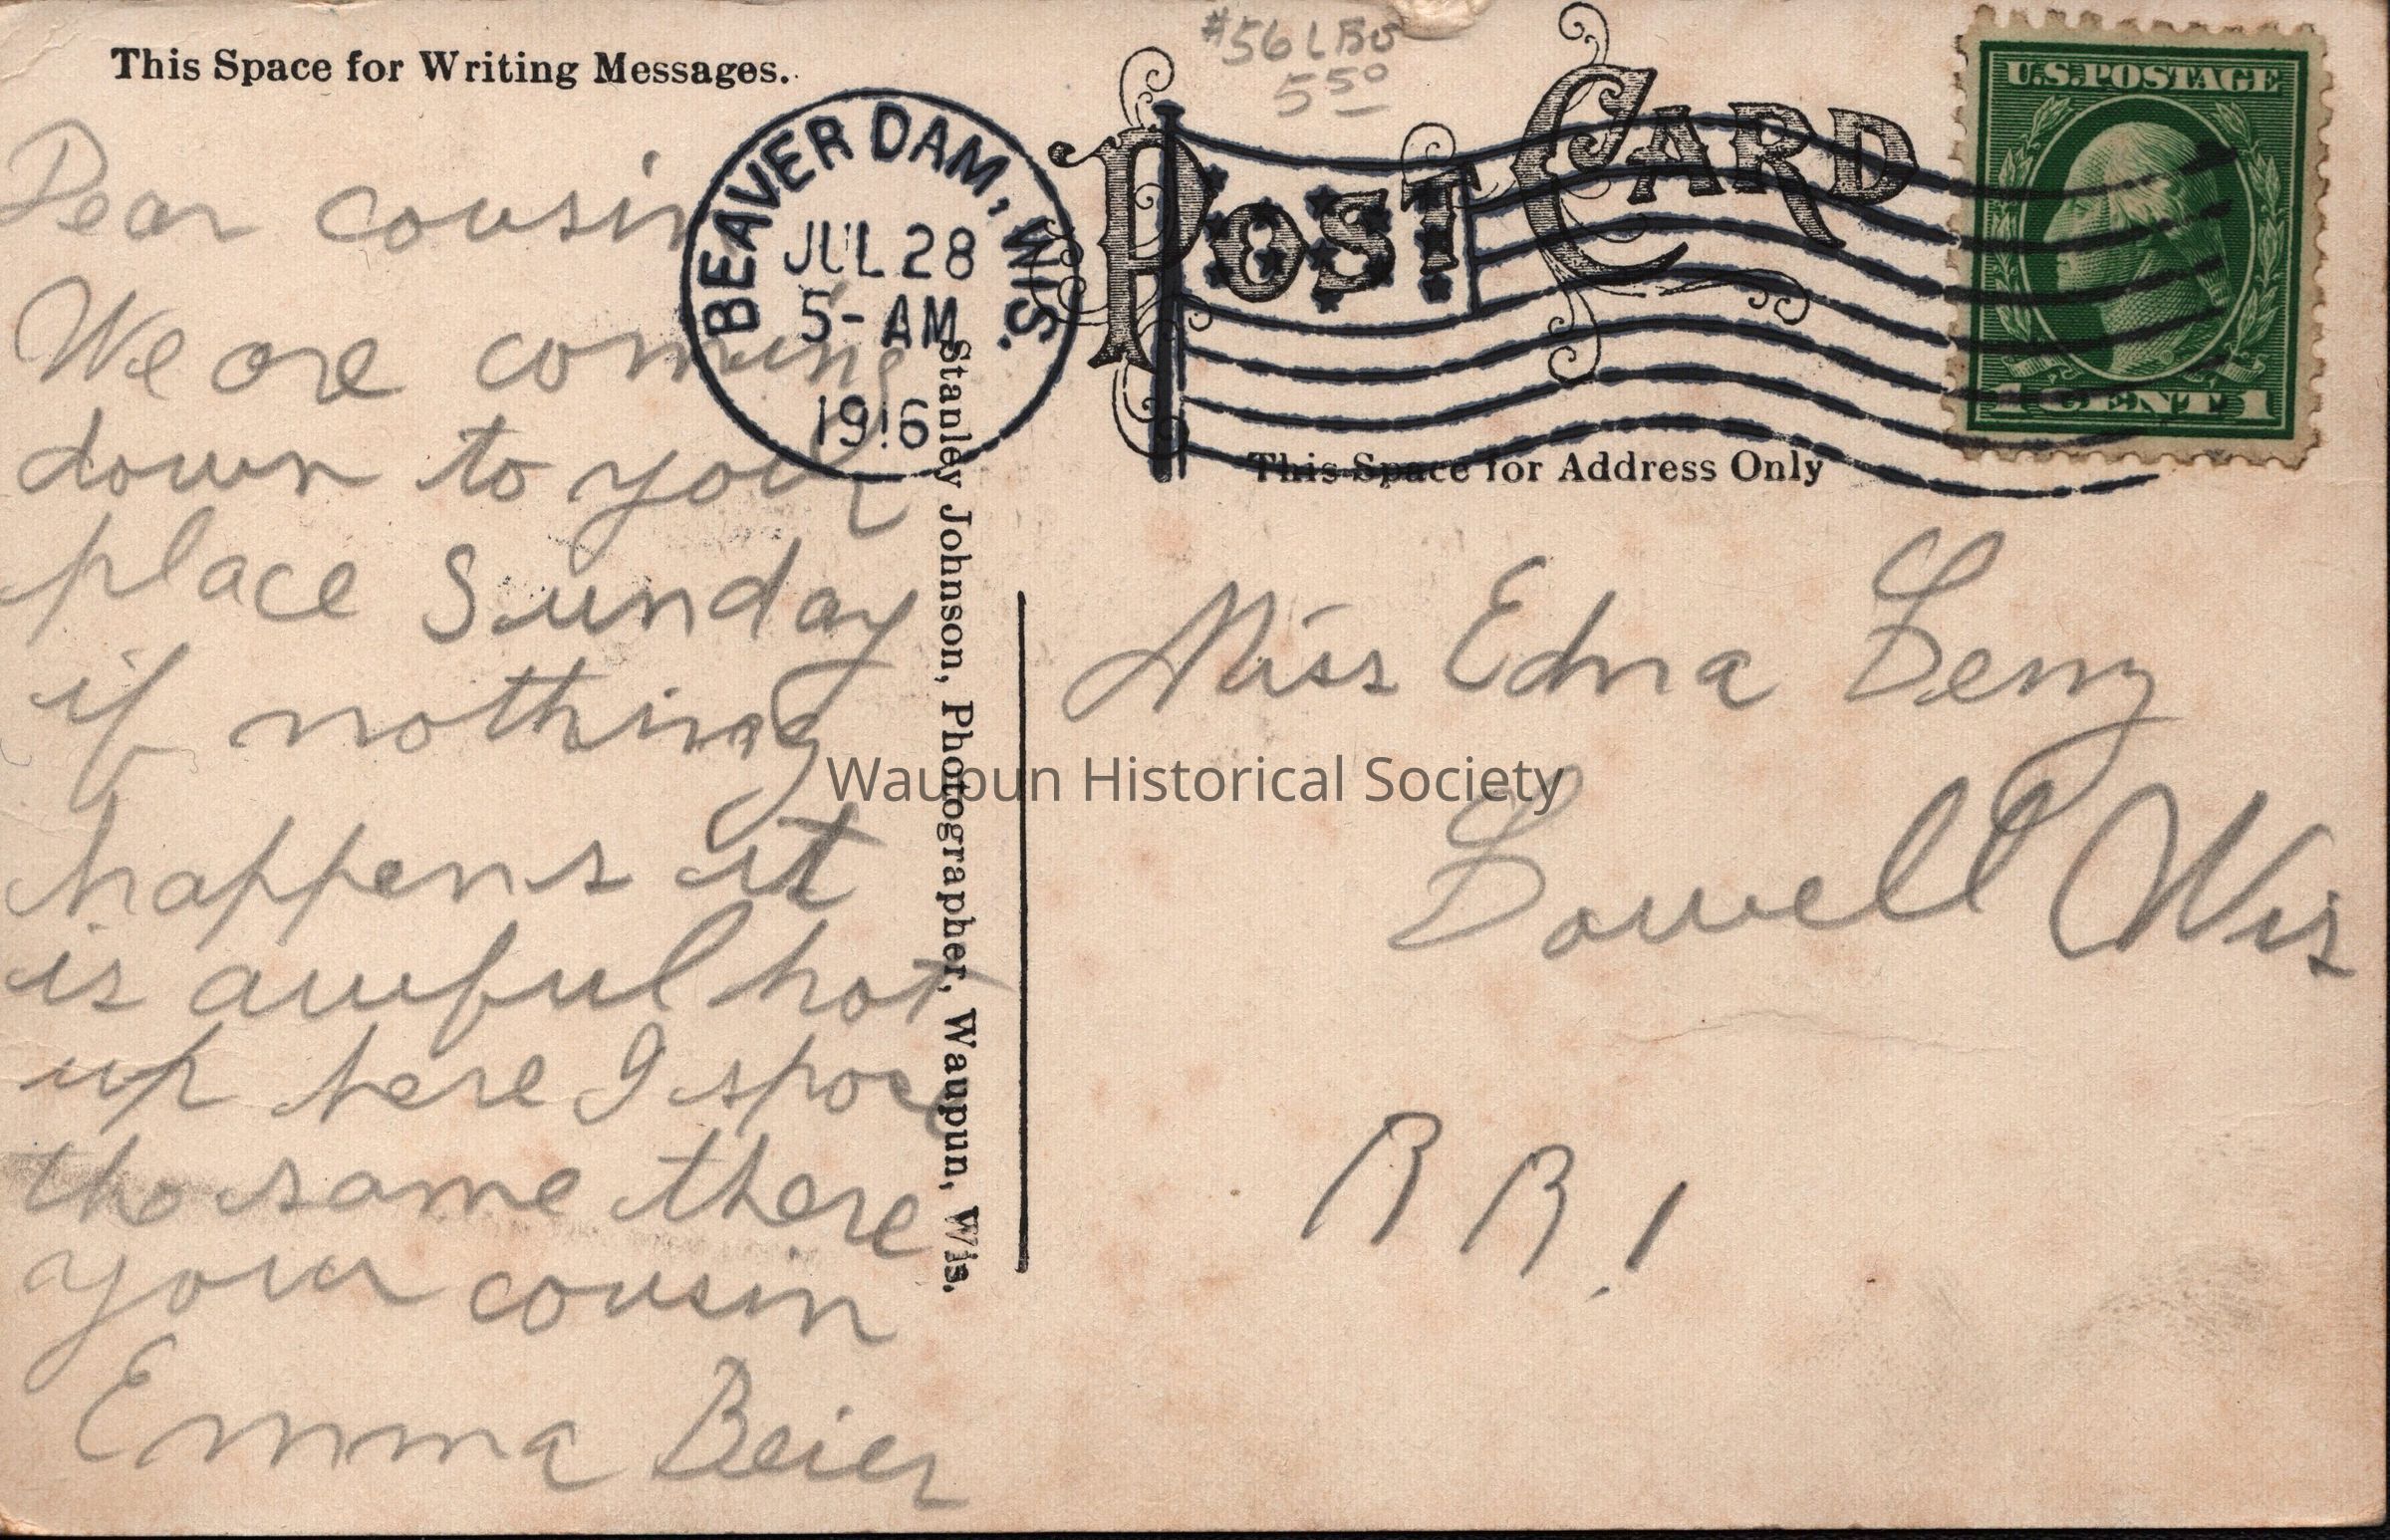 This Space for Writing Messages.
#56 LBS
5 50
POST CARD
U.S.POSTAGE
1 CENT 1
BEAVER DAM, WIS.
JUL 28
5- AM
1916
This Space for Address Only
Dear cousin
We are coming
down to your
place Sunday
if nothing
happens it
is awful hot
up here I spose
the same there
your cousin
Emma Beier
Stanley Johnson, Photographer, Waupun, Wis.
Miss Edna Lenz
Lowell Wis
R R. 1
Waupun Historical Society